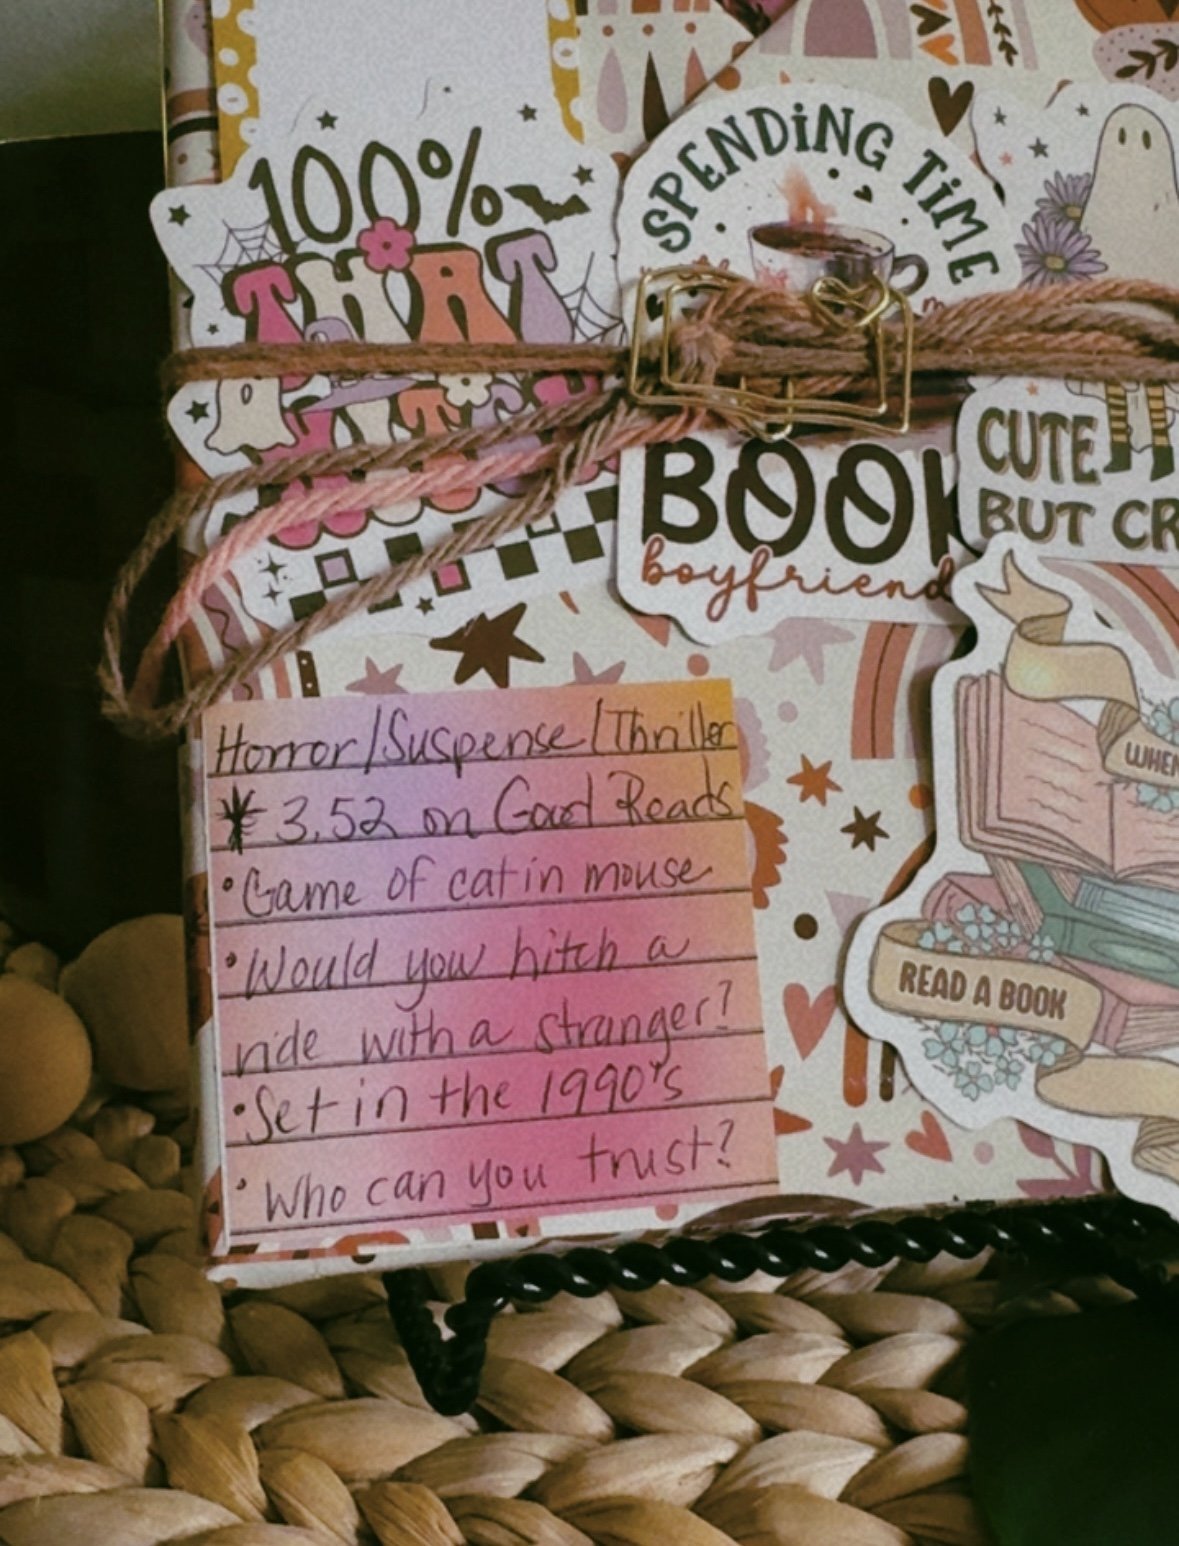 100%
THAT
SPENDING TIME
BOOK
boyfriend
CUTE
BUT CR
WHEN
READ A BOOK
Horror/Suspense/Thriller
* 3.52 on Good Reads
• Game of cat in mouse
• Would you hitch a
ride with a stranger?
• Set in the 1990's
• Who can you trust?